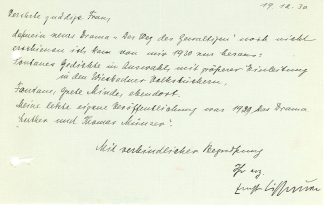 19.12.30
Verehrte gnädige Frau,
da mein neues Drama „Der Weg des Gewaltigen" noch nicht
erschienen ist, kam von mir 1930 nur heraus:
Fontanes Gedichte in Auswahl mit größerer Einleitung
in den Wiesbadner Volksbüchern.
Fontane, Grete Minde, ebendort.
Meine letzte eigene Veröffentlichung war 1929 das Drama
Luther und Thomas Münzer.
Mit verbindlicher Begrüßung
Ihr erg
Ernst Lissauer